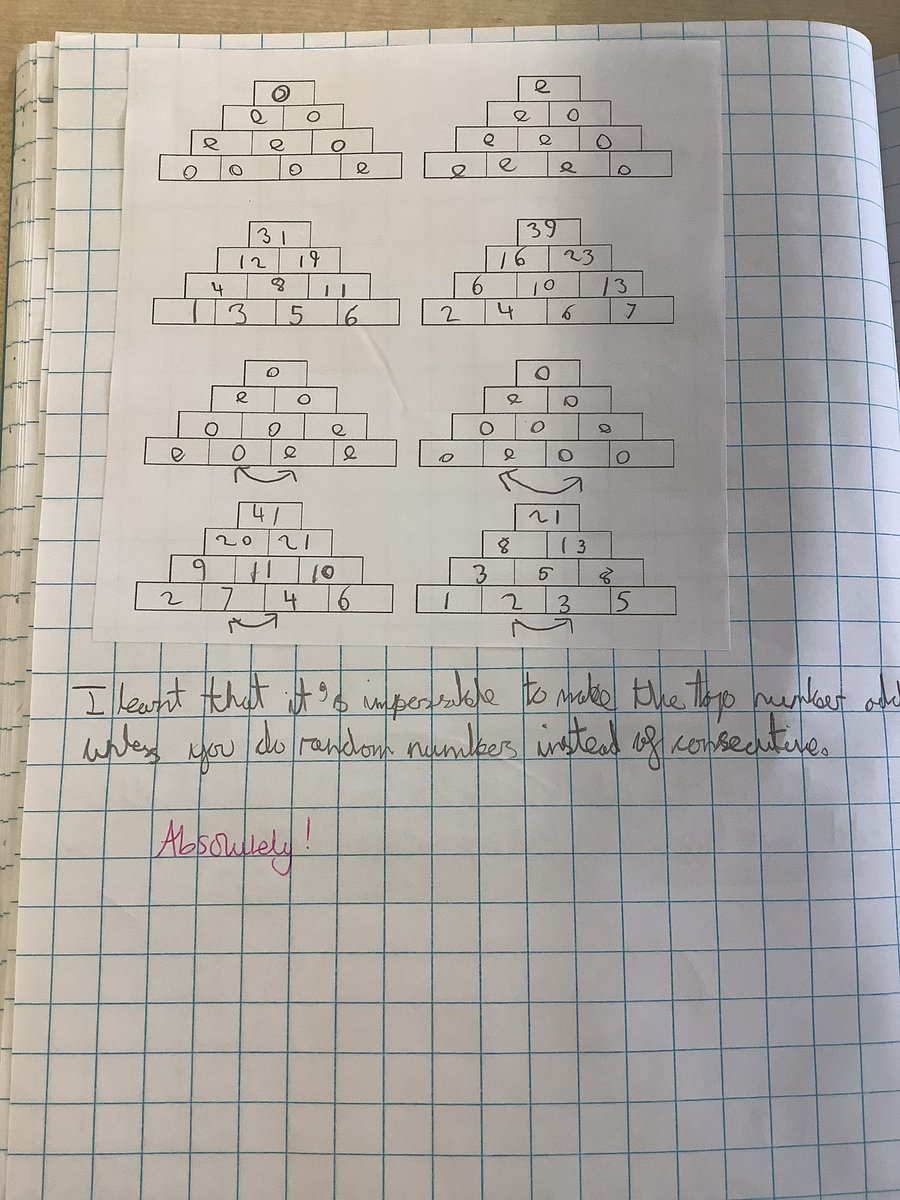 o e
e o e o
e e o e e o
o o o e e e e o
31 39
12 19 16 23
4 8 11 6 10 13
1 3 5 6 2 4 6 7
o o
e o e o
o o e o o e
e o e e o e o o
41 21
20 21 8 13
9 11 10 3 5 8
2 7 4 6 1 2 3 5
I learnt that it's impossible to make the top number odd
unless you do random numbers instead of consecutive.
Absolutely!